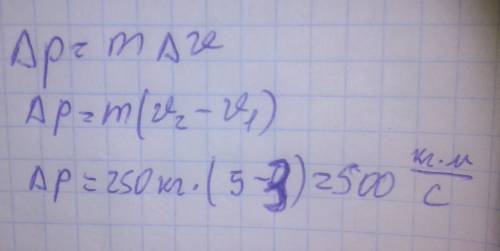 Δp = m Δv
Δp = m(v₂ - v₁)
Δp = 250 кг. · (5-3) = 500 кг·м/с